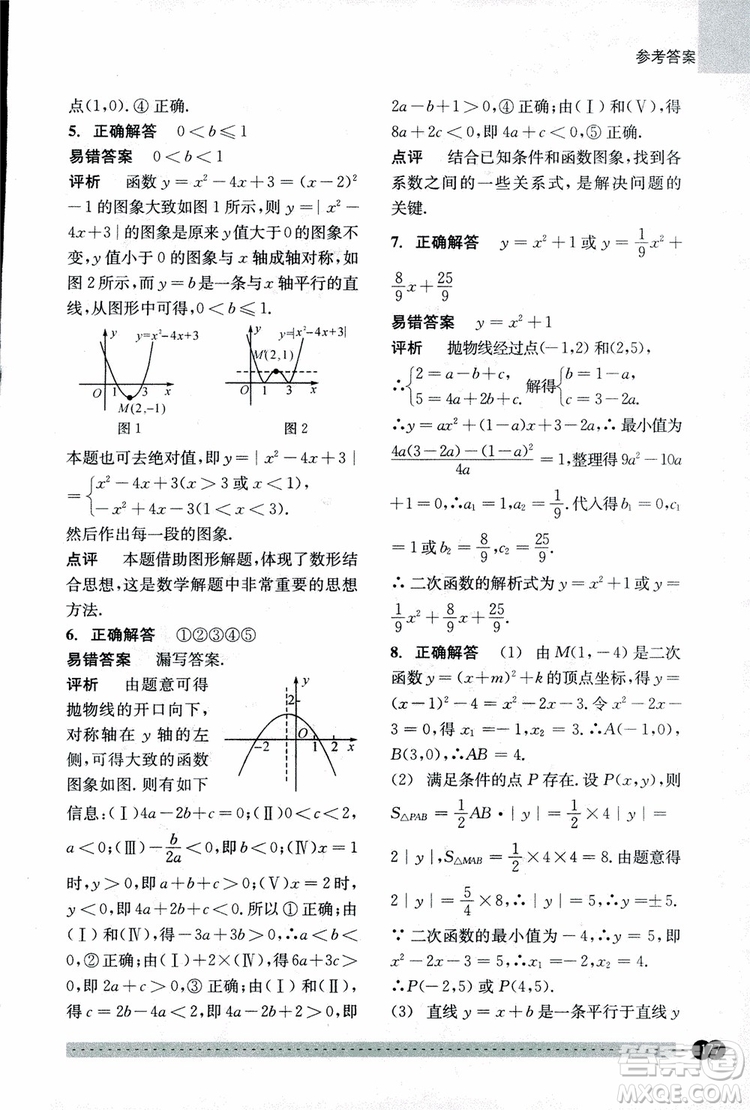 参考答案
点(1,0).④ 正确.
5. 正确解答 0<b≤1
易错答案 0<b<1
评析 函数 y=x²-4x+3=(x-2)²
-1 的图象大致如图 1 所示,则 y=|x²-
4x+3|的图象是原来 y 值大于 0 的图象不
变,y 值小于 0 的图象与 x 轴成轴对称,如
图 2 所示,而 y=b 是一条与 x 轴平行的直
线,从图形中可得,0<b≤1.
y
y=x²-4x+3
O 1 3 x
M(2,-1)
图 1
y
y=|x²-4x+3|
M(2,1)
O 1 3 x
图 2
本题也可去绝对值,即 y=|x²-4x+3|
={x²-4x+3(x>3 或 x<1),
-x²+4x-3(1<x<3).
然后作出每一段的图象.
点评 本题借助图形解题,体现了数形结
合思想,这是数学解题中非常重要的思想
方法.
6. 正确解答 ①②③④⑤
易错答案 漏写答案.
评析 由题意可得
抛物线的开口向下,
对称轴在 y 轴的左
侧,可得大致的函数
图象如图. 则有以下
y
2
-2 O 1 2 x
信息:(Ⅰ)4a-2b+c=0;(Ⅱ)0<c<2,
a<0;(Ⅲ)-b/2a<0,即 b<0;(Ⅳ)x=1
时,y>0,即 a+b+c>0;(Ⅴ)x=2 时,y
<0,即 4a+2b+c<0. 所以 ① 正确;由
(Ⅰ)(Ⅳ)得-3a+3b>0,∴a<b<
0,② 正确;由(Ⅰ)+2×(Ⅳ)得 6a+3c>
0,即 2a+c>0,③ 正确;由(Ⅰ)(Ⅱ)
得 c=2b-4a<2,即 2a-b>-1,即
2a-b+1>0,④ 正确;由(Ⅰ)和(Ⅴ),得
8a+2c<0,即 4a+c<0,⑤ 正确.
点评 结合已知条件和函数图象,找到各
系数之间的一些关系式,是解决问题的
关键.
7. 正确解答 y=x²+1 或 y=1/9x²+
8/9x+25/9
易错答案 y=x²+1
评析 抛物线经过点(-1,2)和(2,5),
∴{2=a-b+c, 解得{b=1-a,
5=4a+2b+c, c=3-2a.
∴y=ax²+(1-a)x+3-2a,∴ 最小值为
4a(3-2a)-(1-a)²/4a=0,整理得 9a²-10a
+1=0,∴a₁=1,a₂=1/9. 代入得 b₁=0,c₁
=1 或 b₂=8/9,c₂=25/9.
∴ 二次函数的解析式为 y=x²+1 或 y=
1/9x²+8/9x+25/9.
8. 正确解答 (1) 由 M(1,-4)是二次
函数 y=(x+m)²+k 的顶点坐标,得 y=
(x-1)²-4=x²-2x-3. 令 x²-2x-
3=0,得 x₁=-1,x₂=3. ∴A(-1,0),
B(3,0),∴AB=4.
(2) 满足条件的点 P 存在. 设 P(x,y),则
S△PAB=1/2AB·|y|=1/2×4|y|=
2|y|,S△MAB=1/2×4×4=8. 由题意得
2|y|=5/4×8,∴|y|=5,∴y=±5.
∵ 二次函数的最小值为-4,∴y=5. 当
y=5 时,∴x₁=-2,x₂=4.
∴P(-2,5)或 P(4,5).
(3) 直线 y=x+b 是一条平行于直线 y
答案圈
MXQE.COM